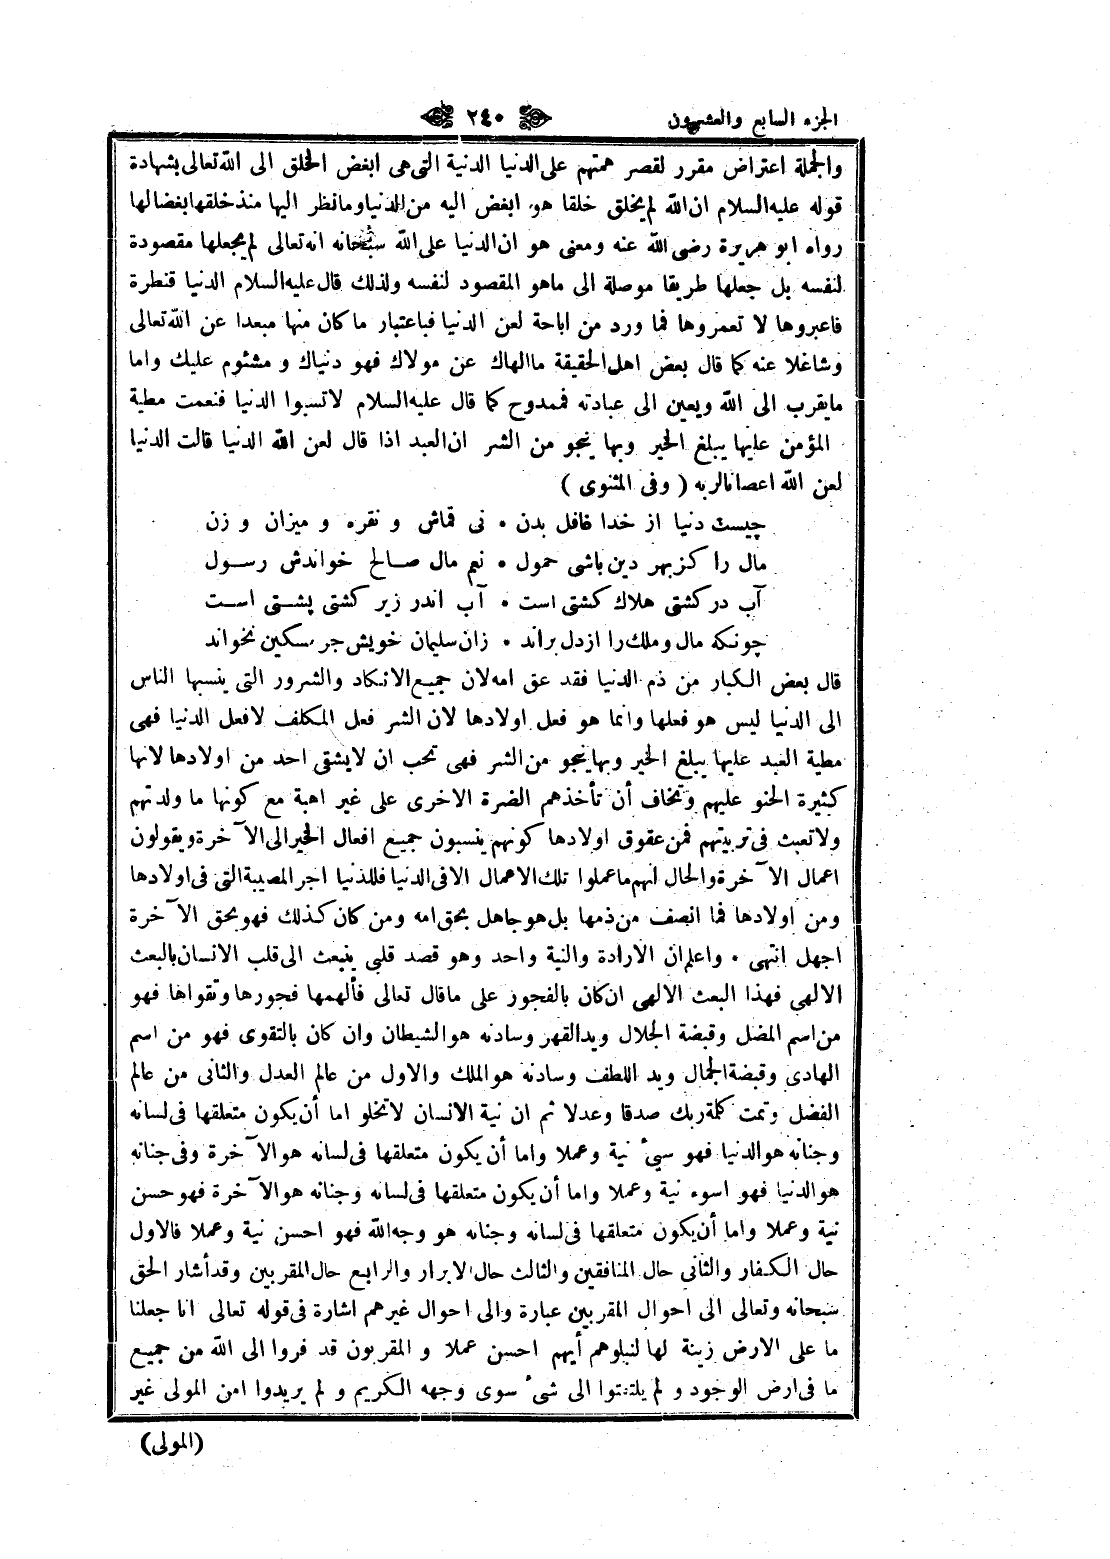 الجزء السابع والعشرون
٢٤٠
والجملة اعتراض مقرر لقصر همتهم على الدنيا الدنية التى هى ابغض الخلق الى الله تعالى بشهادة
قوله عليه السلام ان الله لم يخلق خلقا هو ابغض اليه من الدنيا وما نظر اليها منذ خلقها بغضا لها
رواه ابو هريرة رضى الله عنه ومعنى هو ان الدنيا على الله سبحانه انه تعالى لم يجعلها مقصودة
لنفسه بل جعلها طريقا موصلة الى ماهو المقصود لنفسه ولذلك قال عليه السلام الدنيا قنطرة
فاعبروها لا تعمروها فما ورد من اباحة لعن الدنيا فباعتبار ما كان منها مبعدا عن الله تعالى
وشاغلا عنه كما قال بعض اهل الحقيقة ما الهاك عن مولاك فهو دنياك و مشئوم عليك واما
مايقرب الى الله ويعين الى عبادته فممدوح كما قال عليه السلام لا تسبوا الدنيا فنعمت مطية
المؤمن عليها يبلغ الخير وبها ينجو من الشر ان العبد اذا قال لعن الله الدنيا قالت الدنيا
لعن الله اعصانا لربه ( وفى المثنوى )
چيست دنيا از خدا غافل بدن • نى قماش و نقره و ميزان و زن
مال را كز بهر دين باشى حمول • نعم مال صالح خواندش رسول
آب در كشتى هلاك كشتى است • آب اندر زير كشتى پشتى است
چونكه مال وملك را از دل براند • زان سليمان خويش جز مسكين نخواند
قال بعض الكبار من ذم الدنيا فقد عق امه لان جميع الانكاد والشرور التى ينسبها الناس
الى الدنيا ليس هو فعلها وانما هو فعل اولادها لان الشر فعل المكلف لا فعل الدنيا فهى
مطية العبد عليها يبلغ الخير وبها ينجو من الشر فهى تحب ان لا يشقى احد من اولادها لانها
كثيرة الحنو عليهم وتخاف أن تأخذهم الضرة الاخرى على غير اهبة مع كونها ما ولدتهم
ولا تعبت فى تربيتهم فمن عقوق اولادها كونهم ينسبون جميع افعال الخير الى الآخرة ويقولون
اعمال الآخرة والحال انهم ما عملوا تلك الاعمال الا فى الدنيا فللدنيا اجر المصيبة التى فى اولادها
ومن اولادها فما انصف من ذمها بل هو جاهل بحق امه ومن كان كذلك فهو بحق الآخرة
اجهل انتهى • واعلم ان الارادة والنية واحد وهو قصد قلبى ينبعث الى قلب الانسان بالبعث
الالهى فهذا البعث الالهى ان كان بالفجور على ما قال تعالى فألهمها فجورها وتقواها فهو
من اسم المضل وقبضة الجلال ويد القهر وسادنه هو الشيطان وان كان بالتقوى فهو من اسم
الهادى وقبضة الجمال ويد اللطف وسادنه هو الملك والاول من عالم العدل والثانى من عالم
الفضل وتمت كلمة ربك صدقا وعدلا ثم ان نية الانسان لا تخلو اما أن يكون متعلقها فى لسانه
وجنانه هو الدنيا فهو سيئ نية وعملا واما أن يكون متعلقها فى لسانه هو الآخرة وفى جنانه
هو الدنيا فهو اسوء نية وعملا واما أن يكون متعلقها فى لسانه وجنانه هو الآخرة فهو حسن
نية وعملا واما أن يكون متعلقها فى لسانه وجنانه هو وجه الله فهو احسن نية وعملا فالاول
حال الكفار والثانى حال المنافقين والثالث حال الابرار والرابع حال المقربين وقد أشار الحق
سبحانه وتعالى الى احوال المقربين عبارة والى احوال غيرهم اشارة فى قوله تعالى انا جعلنا
ما على الارض زينة لها لنبلوهم أيهم احسن عملا و المقربون قد فروا الى الله من جميع
ما فى ارض الوجود و لم يلتفتوا الى شئ سوى وجهه الكريم و لم يريدوا امن المولى غير
(المولى)